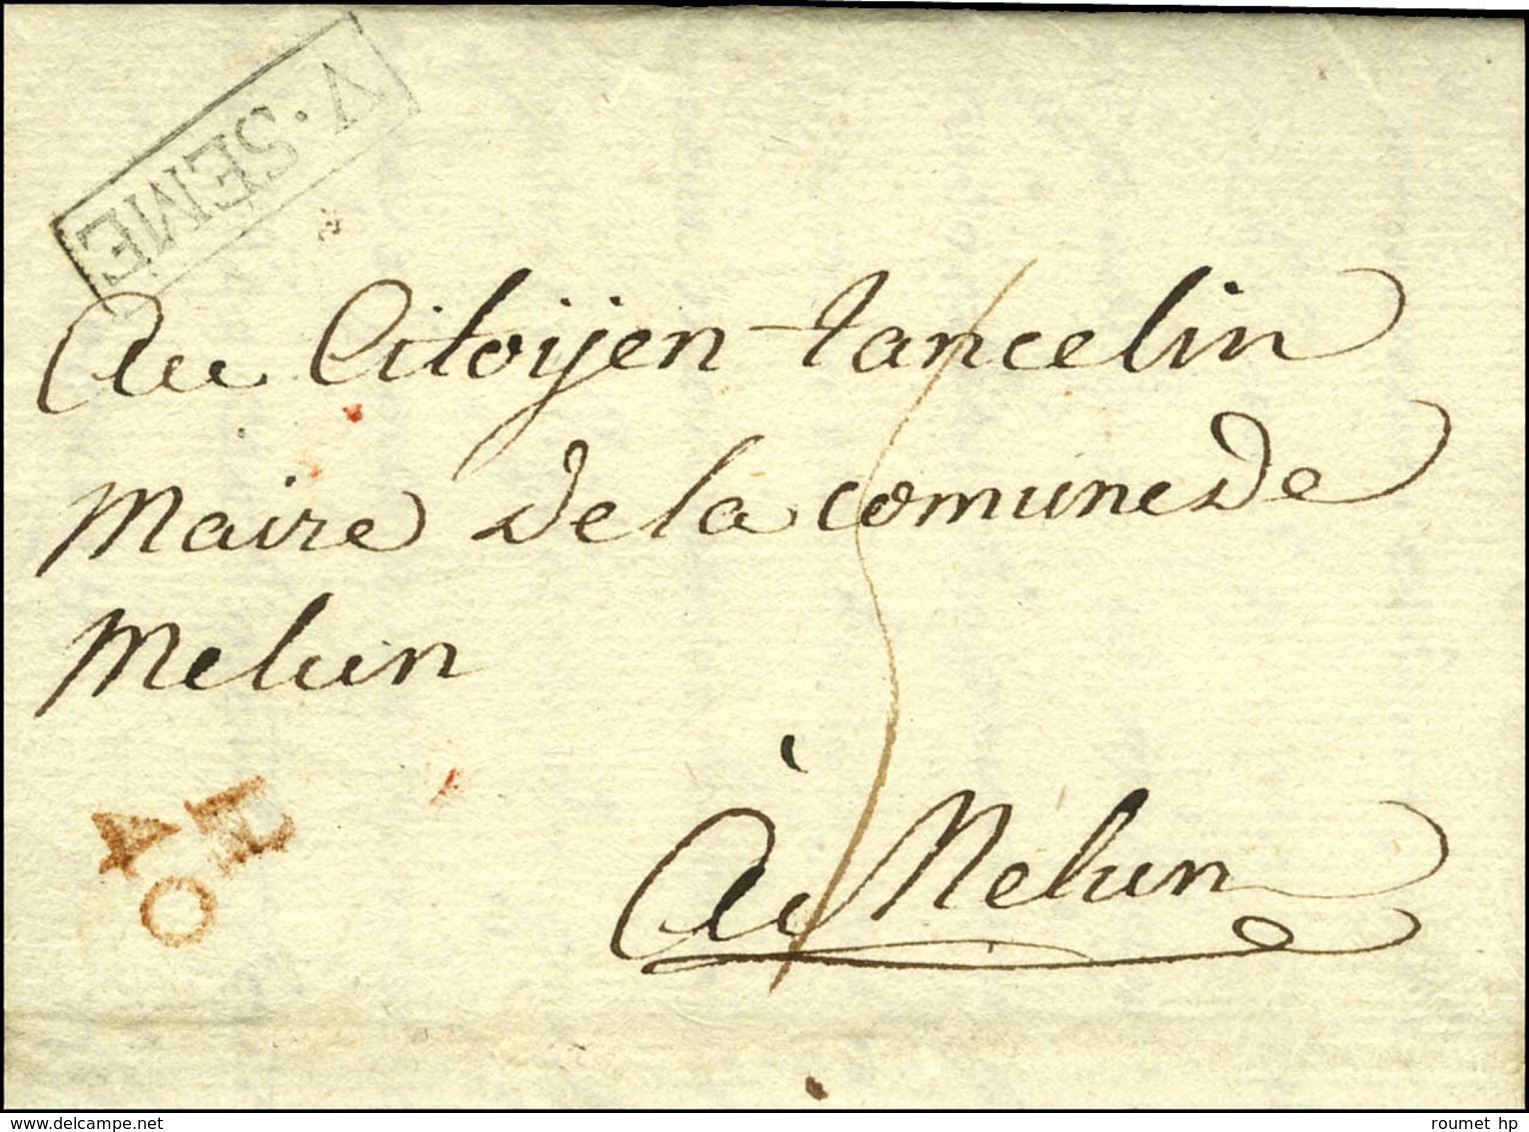 V. SEME
Au Citoijen tancelin
Maire de la comune de
Melun
A H
O
à Melun
delcampe.net
roumet hp